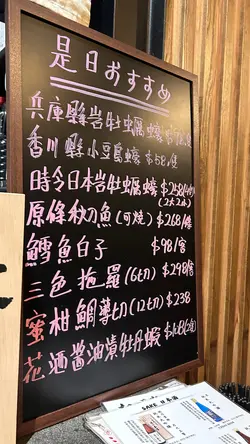 是日おすすめ
兵庫縣岩牡蠣蠔
香川縣小豆島蠔 $58/隻
時令日本岩牡蠣蠔 $258
原條秋刀魚(可燒) $268/條
鱈魚白子 $98/客
三色拖羅(6切) $298/客
蜜柑鯛薄切(12切) $238
花酒醬油漬牡丹蝦
SAKE 日本酒